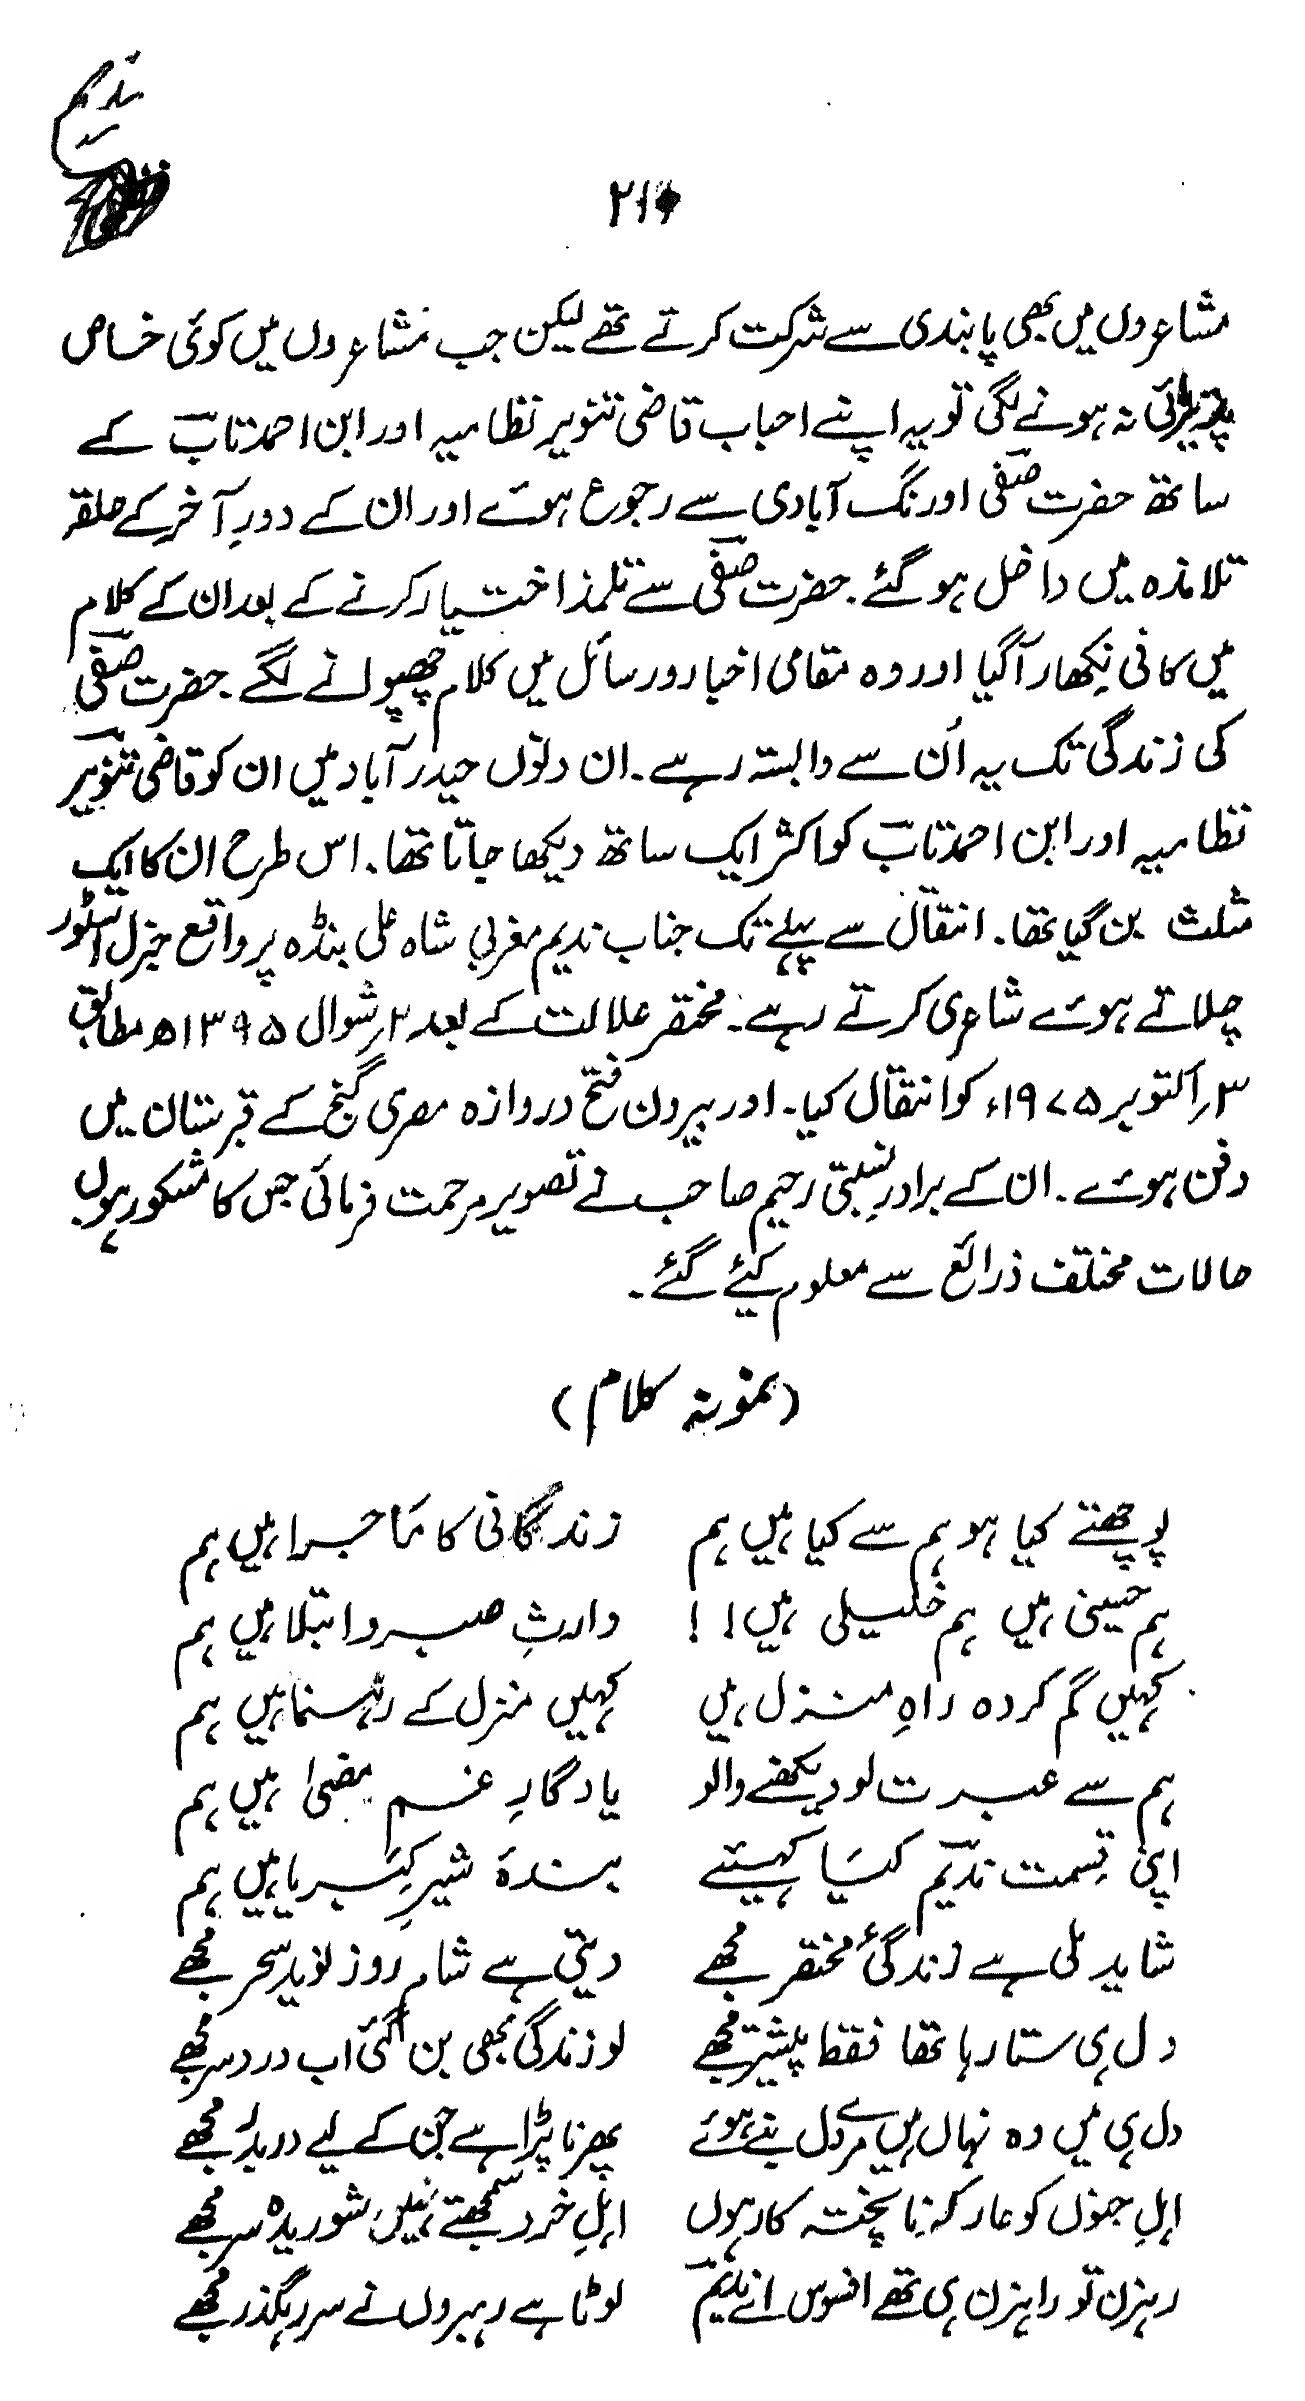 ندیم
۲۱۶
مشاعروں میں بھی پابندی سے شرکت کرتے تھے لیکن جب مشاعروں میں کوئی خاص
پذیرائی نہ ہونے لگی تو یہ اپنے احباب قاضی تنویر نظامیہ اور ابن احمد تاب کے
ساتھ حضرت صفی اورنگ آبادی سے رجوع ہوئے اور ان کے دورِ آخر کے حلقہ
تلامذہ میں داخل ہو گئے۔ حضرت صفی سے تلمذ اختیار کرنے کے بعد ان کے کلام
میں کافی نکھار آگیا اور وہ مقامی اخبار و رسائل میں کلام چھپوانے لگے۔ حضرت صفی
کی زندگی تک یہ اُن سے وابستہ رہے۔ ان دنوں حیدر آباد میں ان کو قاضی تنویر
نظامیہ اور ابن احمد تاب کو اکثر ایک ساتھ دیکھا جاتا تھا۔ اس طرح ان کا ایک
مثلث بن گیا تھا۔ انتقال سے پہلے تک جناب ندیم مغربی شاہ علی بنڈہ پر واقع جنرل اسٹور
چلاتے ہوئے شاعری کرتے رہے۔ مختصر علالت کے بعد ۲؍شوال ۱۳۹۵ھ مطابق
۳؍اکتوبر ۱۹۷۵ء کو انتقال کیا۔ اور بیرون فتح دروازہ مصری گنج کے قبرستان میں
دفن ہوئے۔ ان کے برادرِ نسبتی رحیم صاحب نے تصویر مرحمت فرمائی جس کا مشکور ہوں
حالات مختلف ذرائع سے معلوم کیئے گئے۔
(نمونہ کلام)
پوچھتے کیا ہو ہم سے کیا ہیں ہم زندگانی کا ماجرا ہیں ہم
ہم حسینی ہیں ہم خلیلی ہیں!! وارثِ صبر و ابتلا ہیں ہم
کہیں گم کردہ راہِ منزل ہیں کہیں منزل کے رہنما ہیں ہم
ہم سے عبرت لو دیکھنے والو یادگارِ غم مضیٰ ہیں ہم
اپنی قسمت ندیم کیا کہیئے بندۂ شیرِ کبریا ہیں ہم
شاید ملی ہے زندگیٔ مختصر مجھے دیتی ہے شام روز نوید سحر مجھے
دل ہی ستا رہا تھا فقط پیشتر مجھے لو زندگی بھی بن گئی اب دردسر مجھے
دل ہی میں وہ نہاں ہیں مرے دل بنے ہوئے پھرنا پڑا ہے جن کے لیے دربدر مجھے
اہلِ جنوں کو عار کہ ناپختہ کار ہوں اہلِ خرد سمجھتے نہیں شوریدہ سر مجھے
رہزن تو راہزن ہی تھے افسوس اے ندیم لوٹا ہے رہبروں نے سر رہگذر مجھے